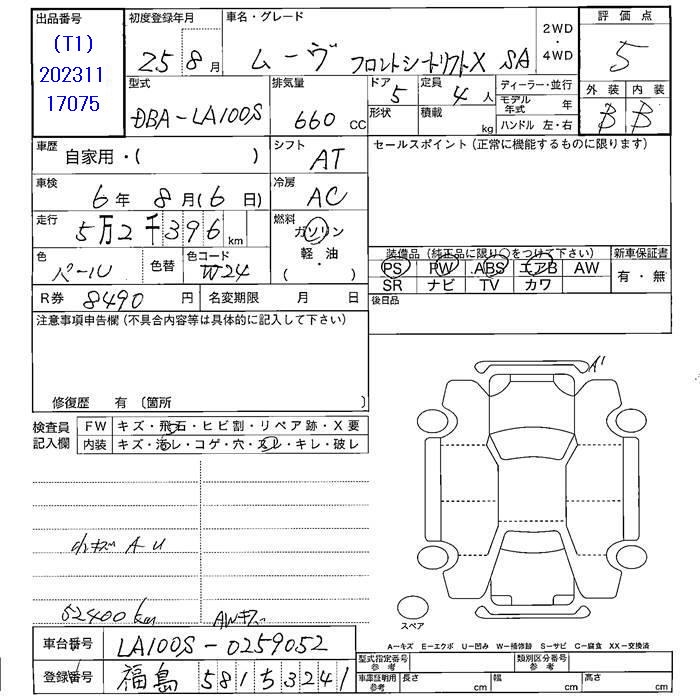 出品番号 初度登録年月 車名・グレード 2WD・4WD 評価点
(T1) 25 8月 ムーヴ フロントシートリフトX SA 5
202311
17075
型式 排気量 ドア 定員 ディーラー・並行 外装 内装
DBA-LA100S 660 CC 5 4人 モデル年式 年 B B
形状 積載 kg ハンドル 左・右
車歴 自家用・( ) シフト AT セールスポイント (正常に機能するものに限ります)
車検 6年 8月(6日) 冷房 AC
走行 5万2千396km 燃料 ガソリン
軽・油
( )
色 パール 色替 色コード W24
装備品 (純正品に限り○をつけて下さい) 新車保証書
PS PW ABS エアB AW 有・無
SR ナビ TV カワ
R券 8490円 名変期限 月 日 後日品
注意事項申告欄 (不具合内容等は具体的に記入して下さい)
修復歴 有 (箇所 )
A'
検査員記入欄 FW キズ・飛石・ヒビ割・リペア跡・X要
内装 キズ・汚レ・コゲ・穴・スレ・キレ・破レ
小キズ A U
52400km AWキズ
スペア
A-キズ E-エクボ U-凹み W-補修跡 S-サビ C-腐食 XX-交換済
車台番号 LA100S-0259052
型式指定番号 参考 類別区分番号 参考
登録番号 福島 581ち3241
車庫証明用 参考 長さ cm 幅 cm 高さ cm